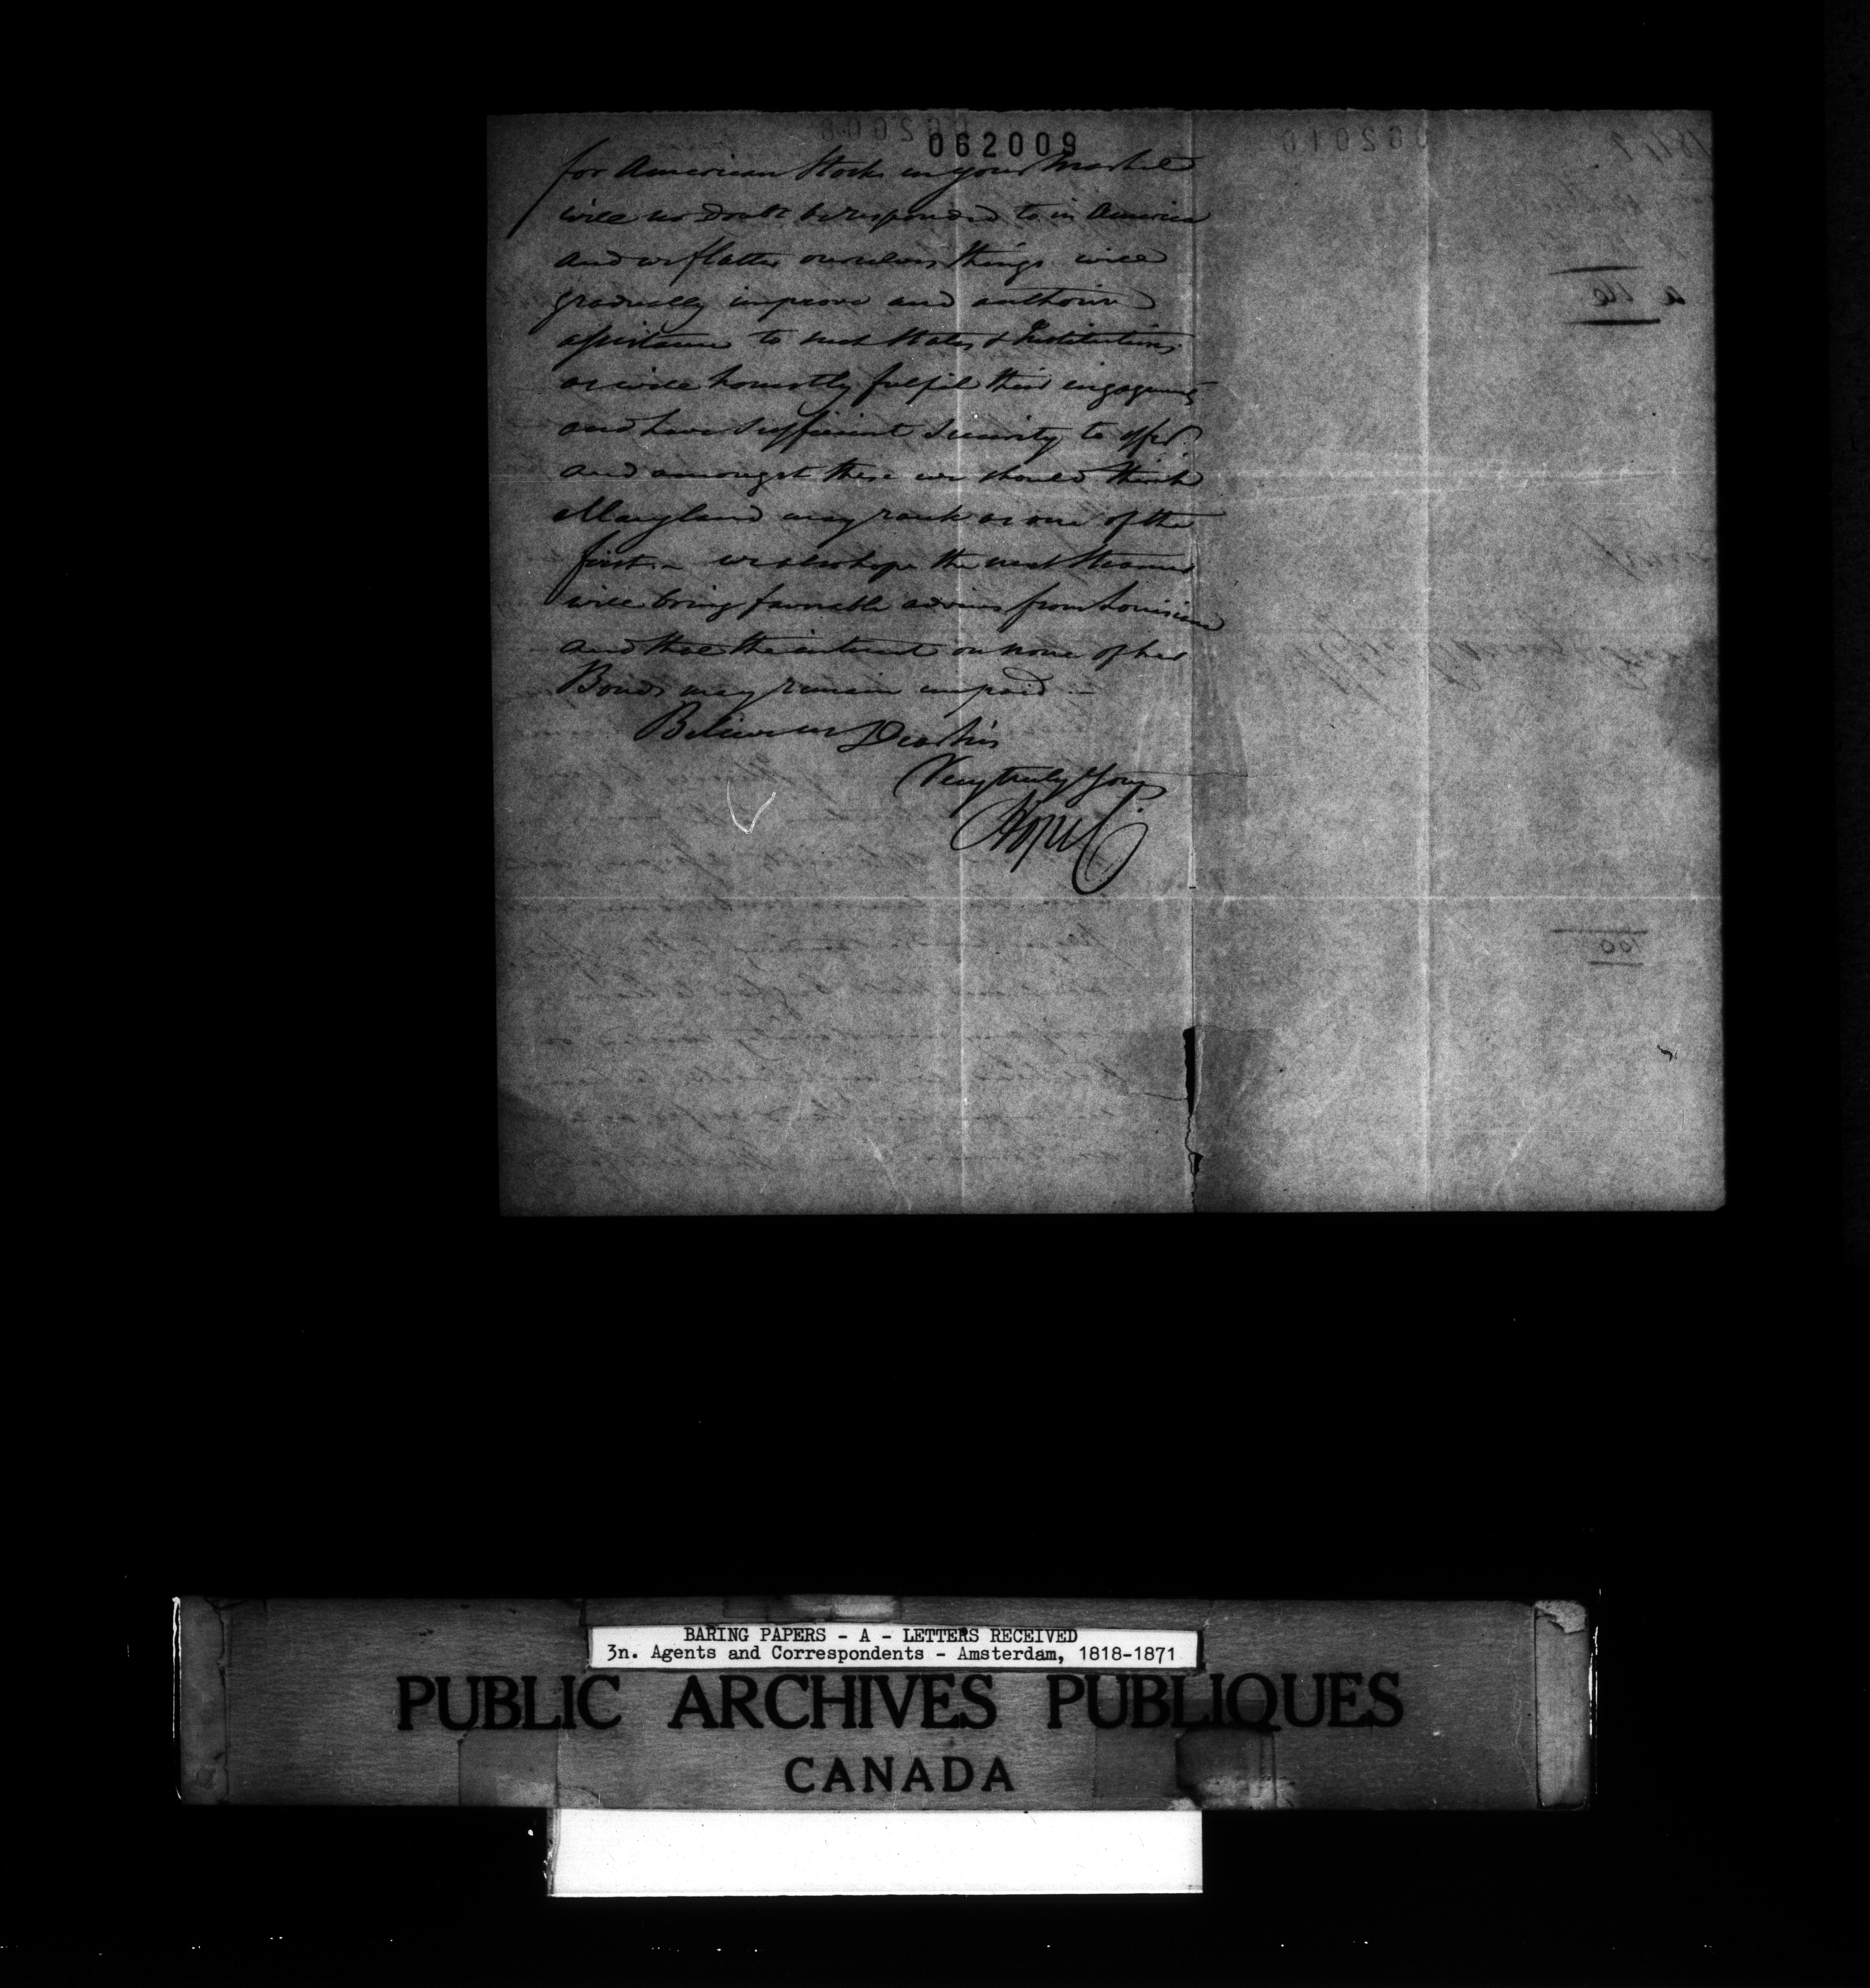 062009
for American Stocks in your Market
will no doubt be responded to in America
and we flatter ourselves things will
gradually improve and authorise
assistance to such States & Institutions
as will honestly fulfil their engagements
and have sufficient security to offer
and amongst these we should think
Maryland may rank as one of the
first. - we also hope the next Steamer
will bring favorable advices from Louisiana
and that the interest on none of her
Bonds may remain unpaid -
Believe us Dear Sirs
Very truly Yours
BARING PAPERS - A - LETTERS RECEIVED
3n. Agents and Correspondents - Amsterdam, 1818-1871
PUBLIC ARCHIVES PUBLIQUES
CANADA